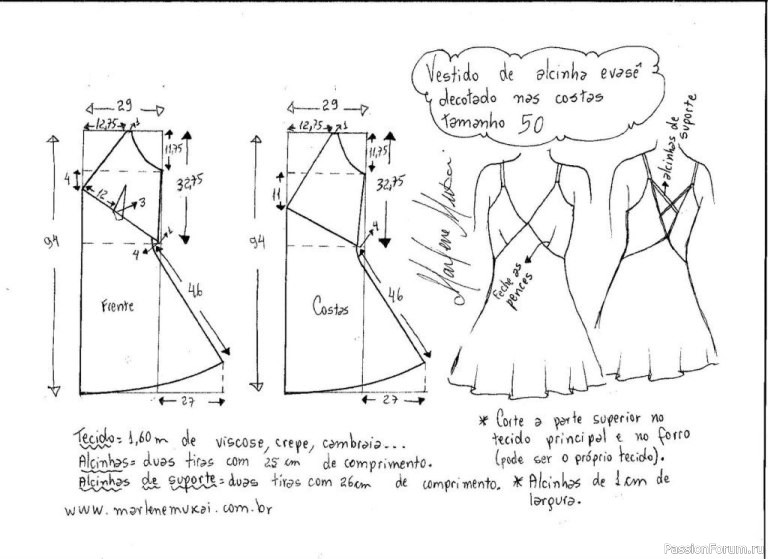 Vestido de alcinha evasê
decotado nas costas
tamanho 50
29
12,75
1
11,75
4
12
3
32,75
94
1
4
46
Frente
27
29
12,75
1
11,75
11
32,75
94
4
46
Costas
27
Marlene Mukai
feche as
pences
alcinhas de
suporte
Tecido= 1,60m de viscose, crepe, cambraia...
Alcinhas= duas tiras com 25 cm de comprimento.
Alcinhas de suporte= duas tiras com 26cm de comprimento.
www.marlenemukai.com.br
* Corte a parte superior no
tecido principal e no forro
(pode ser o próprio tecido).
* Alcinhas de 1cm de
largura.
PassionForum.ru